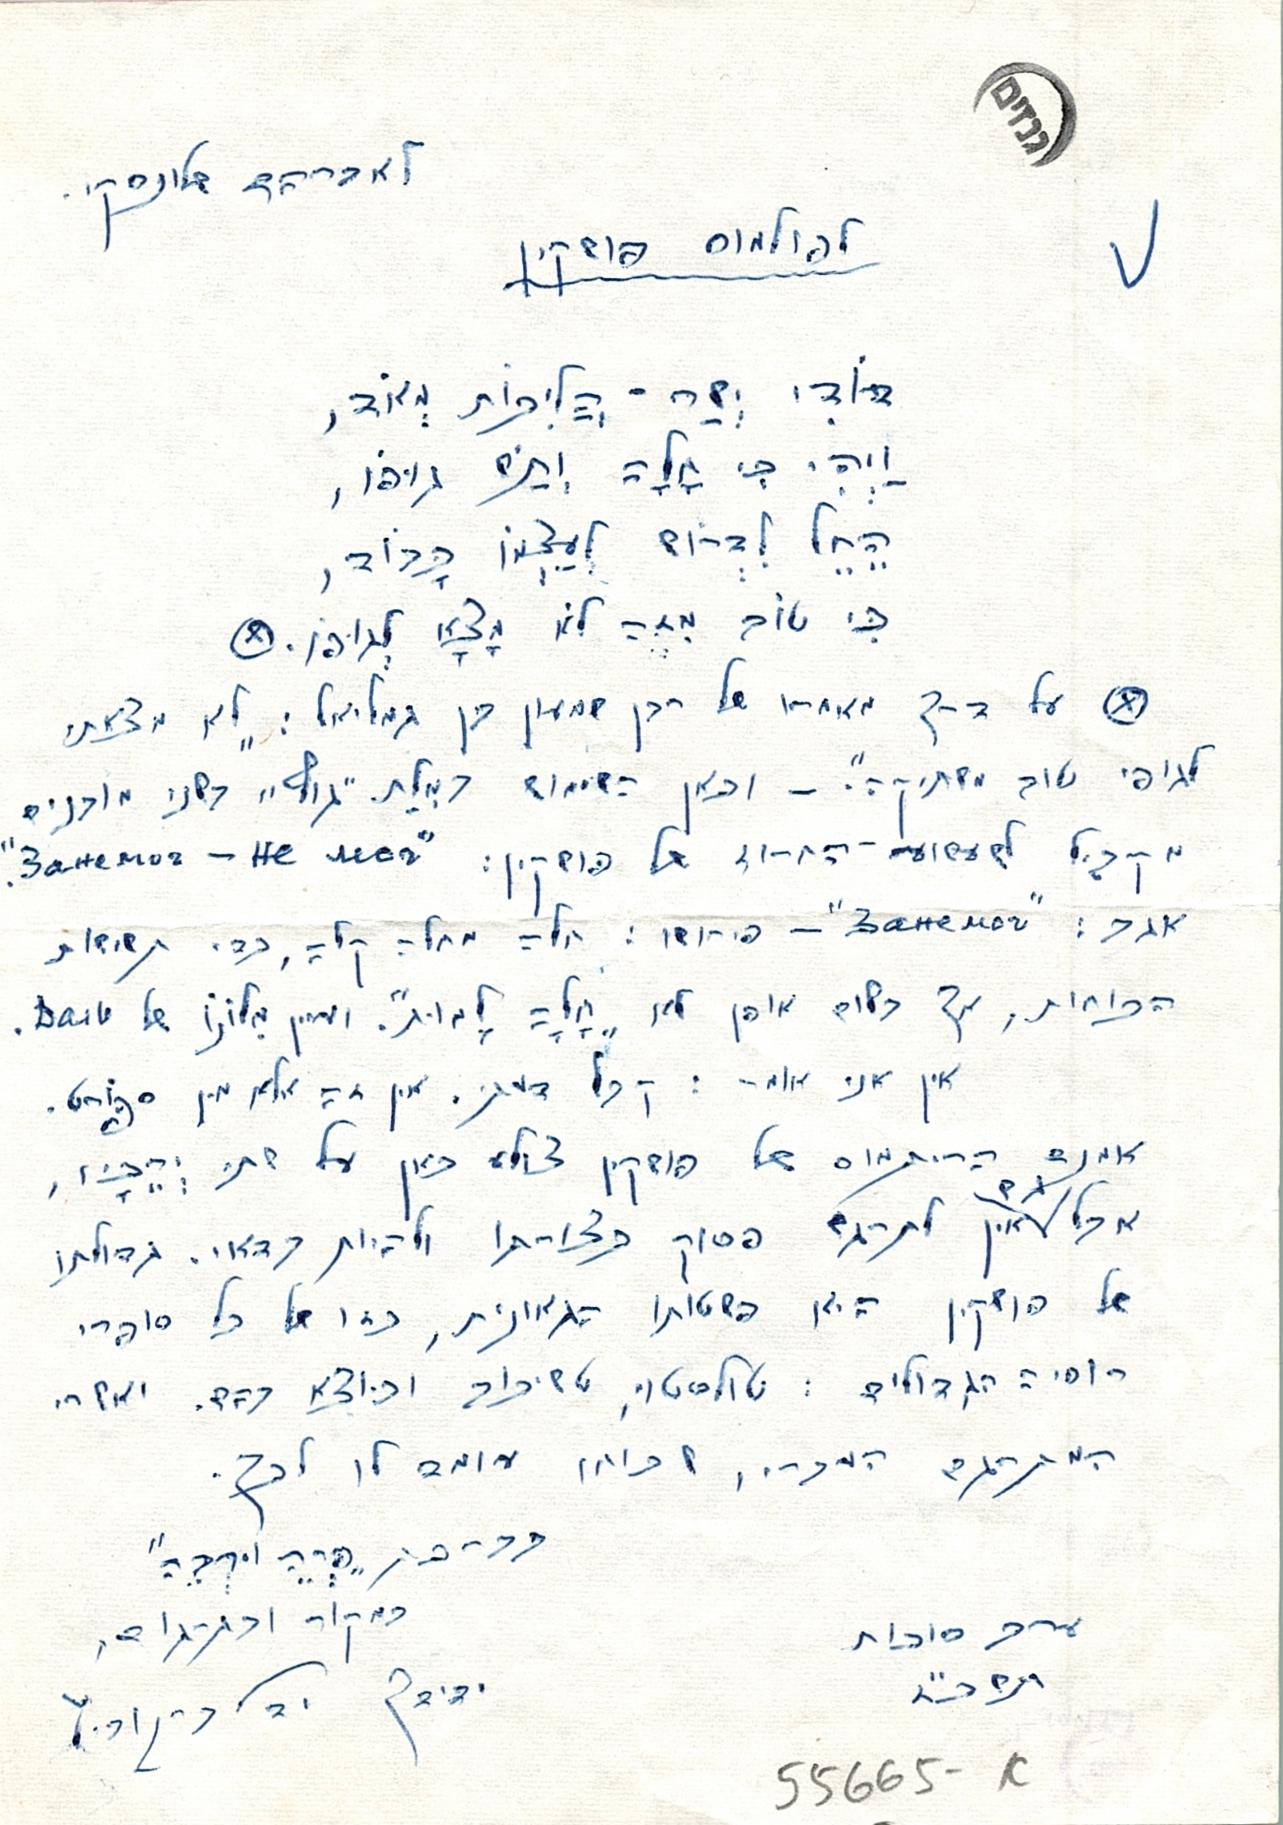 גנזים
לאברהם שלונסקי.
לפולמוס פושקין
דּוֹדִי יְשַׁר-הֲלִיכוֹת מְאוֹד,
וַיְהִי כִּי חָלָה וְתַשׁ גוּפוֹ,
הֵחֵל לִדְרוֹשׁ לְעַצְמוֹ כָּבוֹד,
כִּי טוֹב מִזֶּה לֹא מָצָא לְגוּפוֹ. ⊗
⊗ על דרך מאמרו של רבן שמעון בן גמליאל: „לא מצאתי
לגופי טוב משתיקה". – וכאן השימוש בְּמִלַּת "גוף" בשני מובנים
מקביל לשעשוע-החרוז של פושקין: "Занемог – не мог".
אגב: "Занемог" – פירושו: חלה מחלה קלה, כדי תשישות
הכוחות, אך בשום אופן לא „חָלָה לָמוּת". ועיין מִלּוֹנוֹ של Даль.
אין אני אומר: קבל דעתי. אין זה אלא מין ספּוֹרט.
אומנם הריתמוס של פושקין צולע כאן על שתי יְרֵכָיו,
אבל גם אין לתרגם פסוק כצורתו ולהיות בדאי. גדולתו
של פושקין היא פשטותו הגאונית, כזו של כל סופרי
רוסיה הגדולים: טולסטוי, טשיכוב וכיוצא בהם. ואשרי
המתרגם העברי, שכוחו עומד לו לכך.
בברכת „פְּרֵה וּרְבֵה"
במקור ובתרגום,
ידידך יד' ברקוביץ
ערב סוכות
תשכ"ז
55665-א